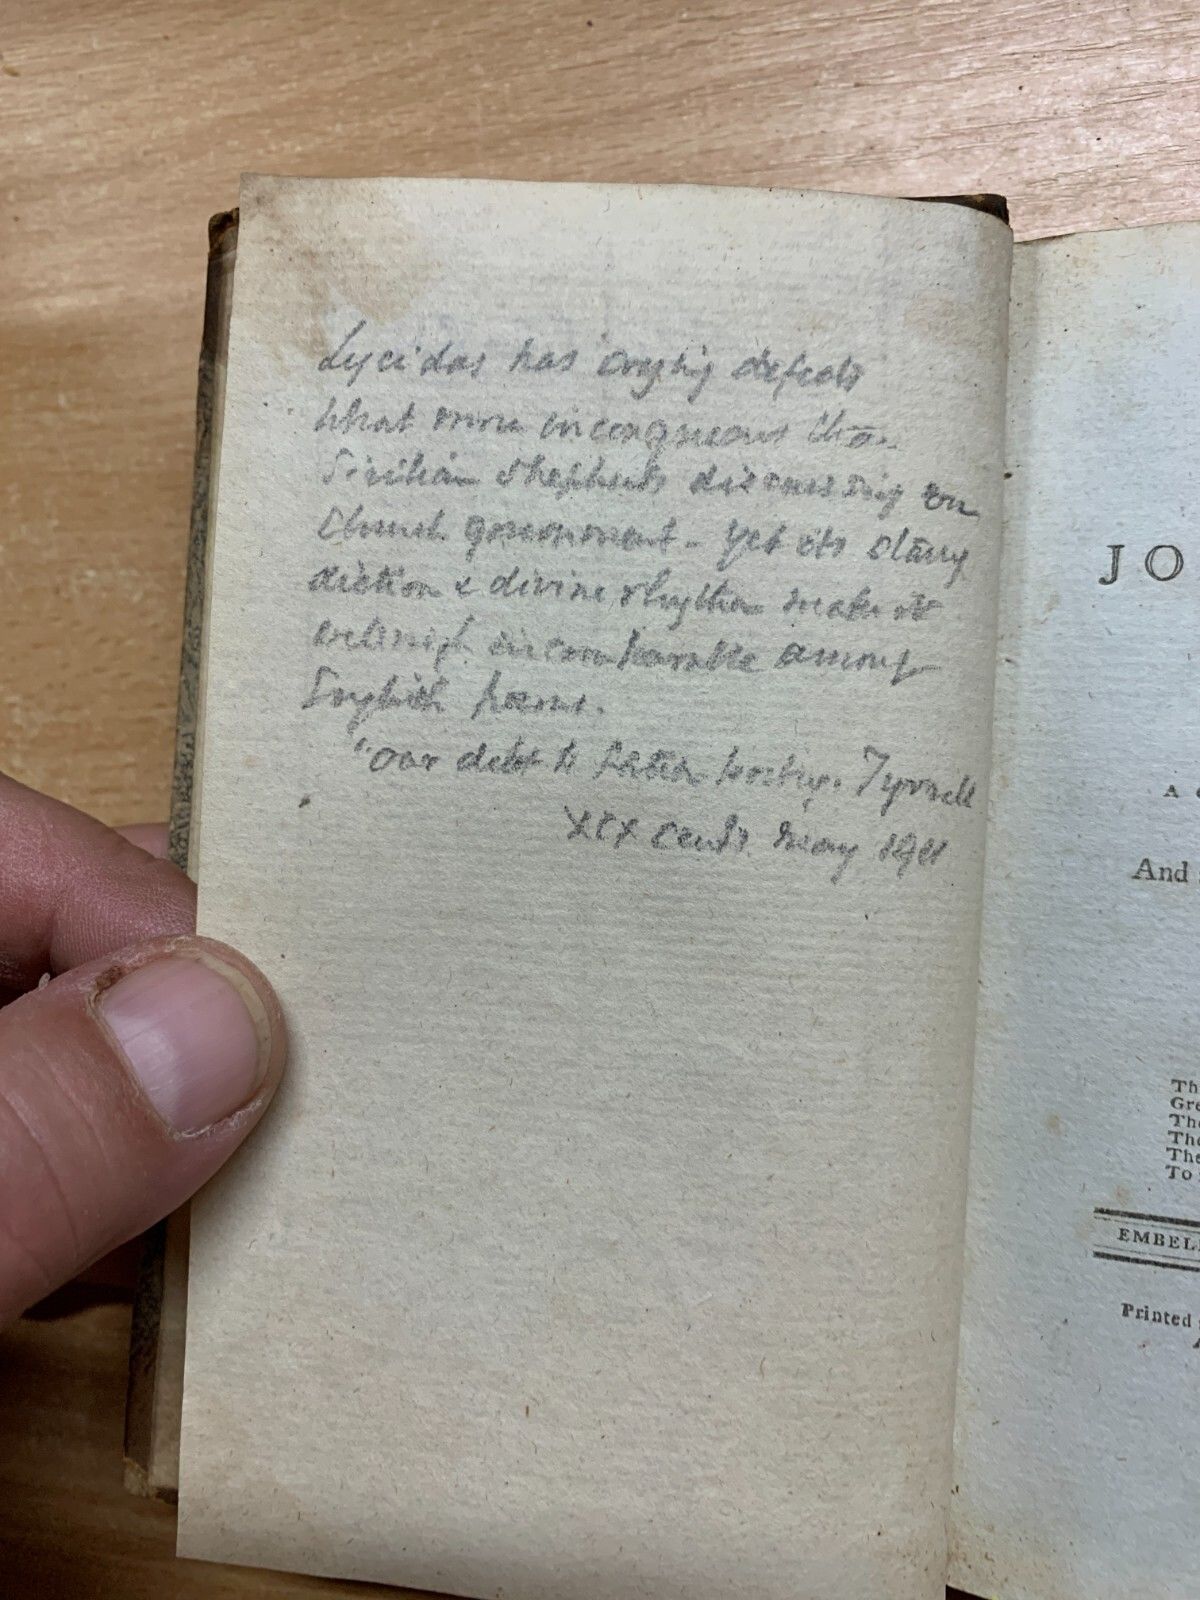 Lycidas has crying defects
What more incongruous than
Sicilian Shepherds discussing on
Church government - Yet its stany
diction & divine rhythm make it
wellnigh incomparable among
English poems.
"Our debt to Latin poetry. Tyrrell
XIX Cent. May 1911
JO
A
And
Th
Gre
The
The
The
To
EMBEL
Printed